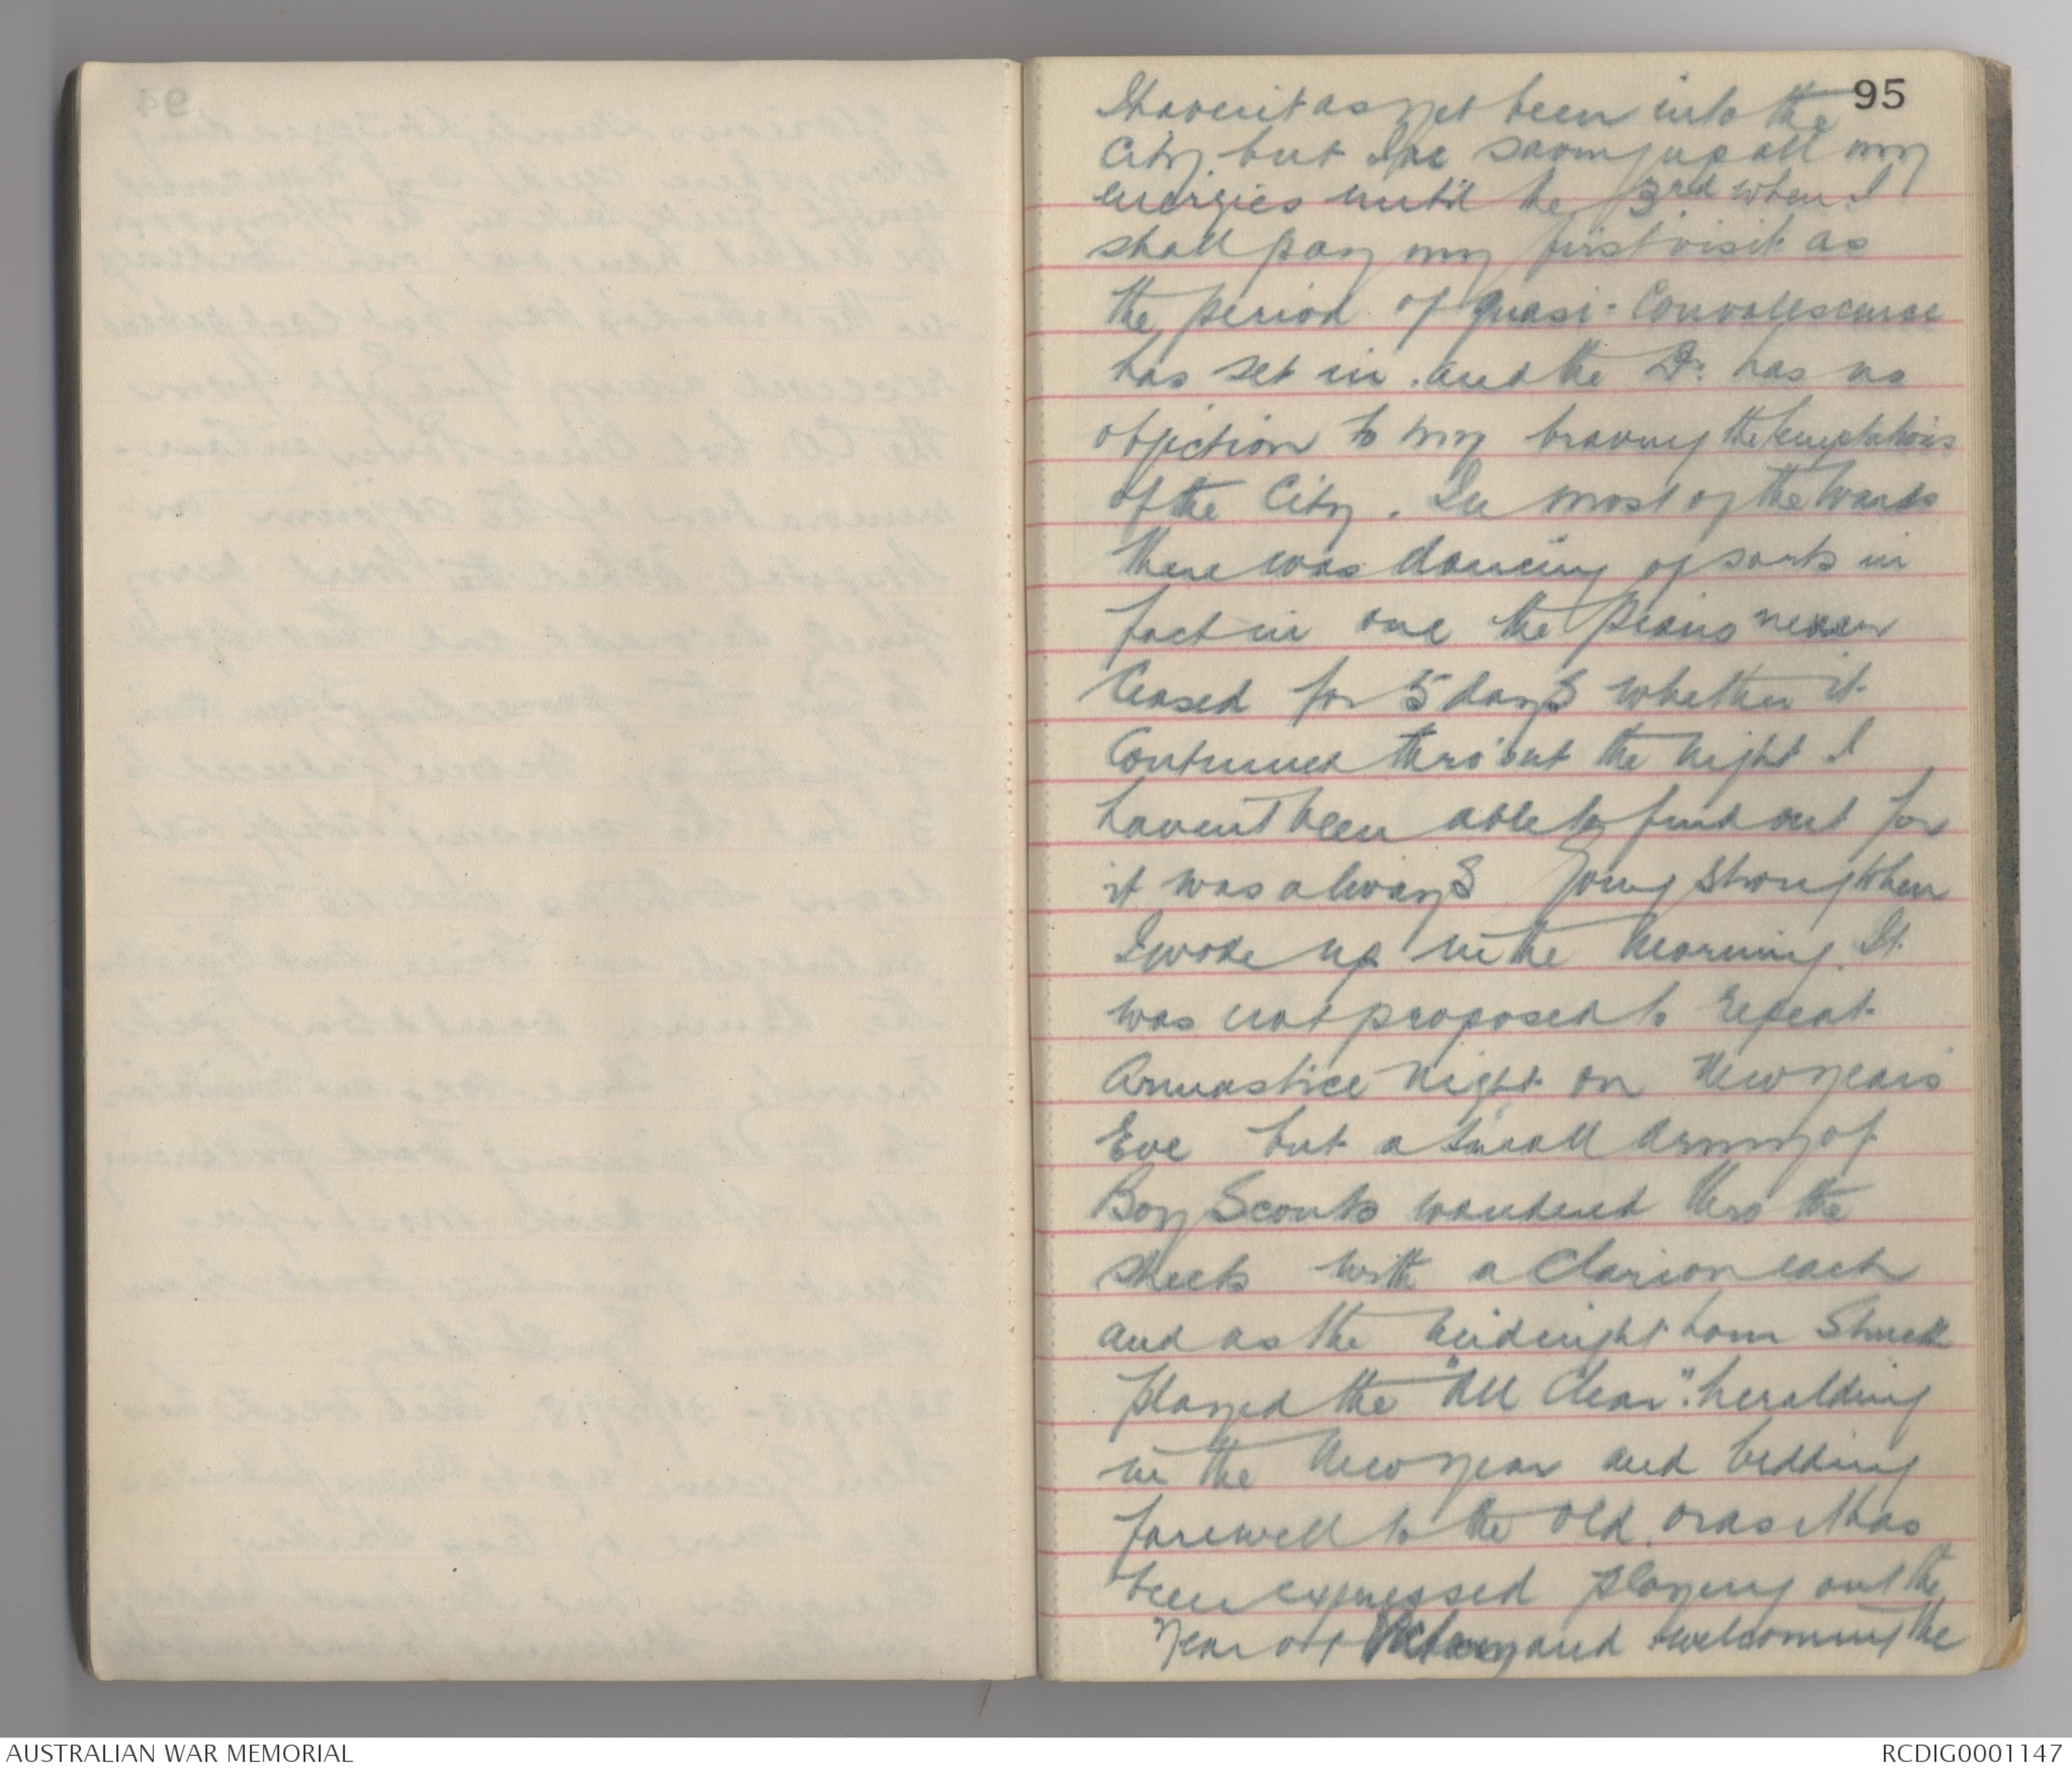 95
I havent as yet been into the
City but I am saving up all my
energies until the 3rd when I
shall pay my first visit as
the period of quasi-Convalescense
has set in. and the Dr. has no
objection to my braving the temptations
of the City. In most of the Wards
there was dancing of sorts in
fact in one the piano never
Ceased for 5 days whether it
Continued thro'out the night I
havent been able to find out for
it was always going strong when
I woke up in the morning. It
was not proposed to repeat
Armastice night on New years
Eve but a small army of
Boy Scouts wandered thro the
streets with a Clarion each
and as the midnight hour Struck
played the "All Clear". heralding
in the New year and bidding
farewell to the Old, or as it has
been expressed playing out the
Year of Victory and welcoming the
AUSTRALIAN WAR MEMORIAL
RCDIG0001147